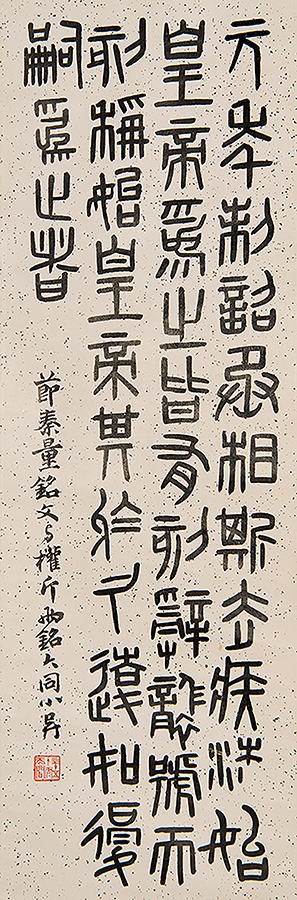 元年制詔丞相斯去疾法始
皇帝為之皆有刻辭襲號而
刻稱始皇帝其於久遠如後
嗣為之者
節秦量銘文与權斤兩銘大同小異